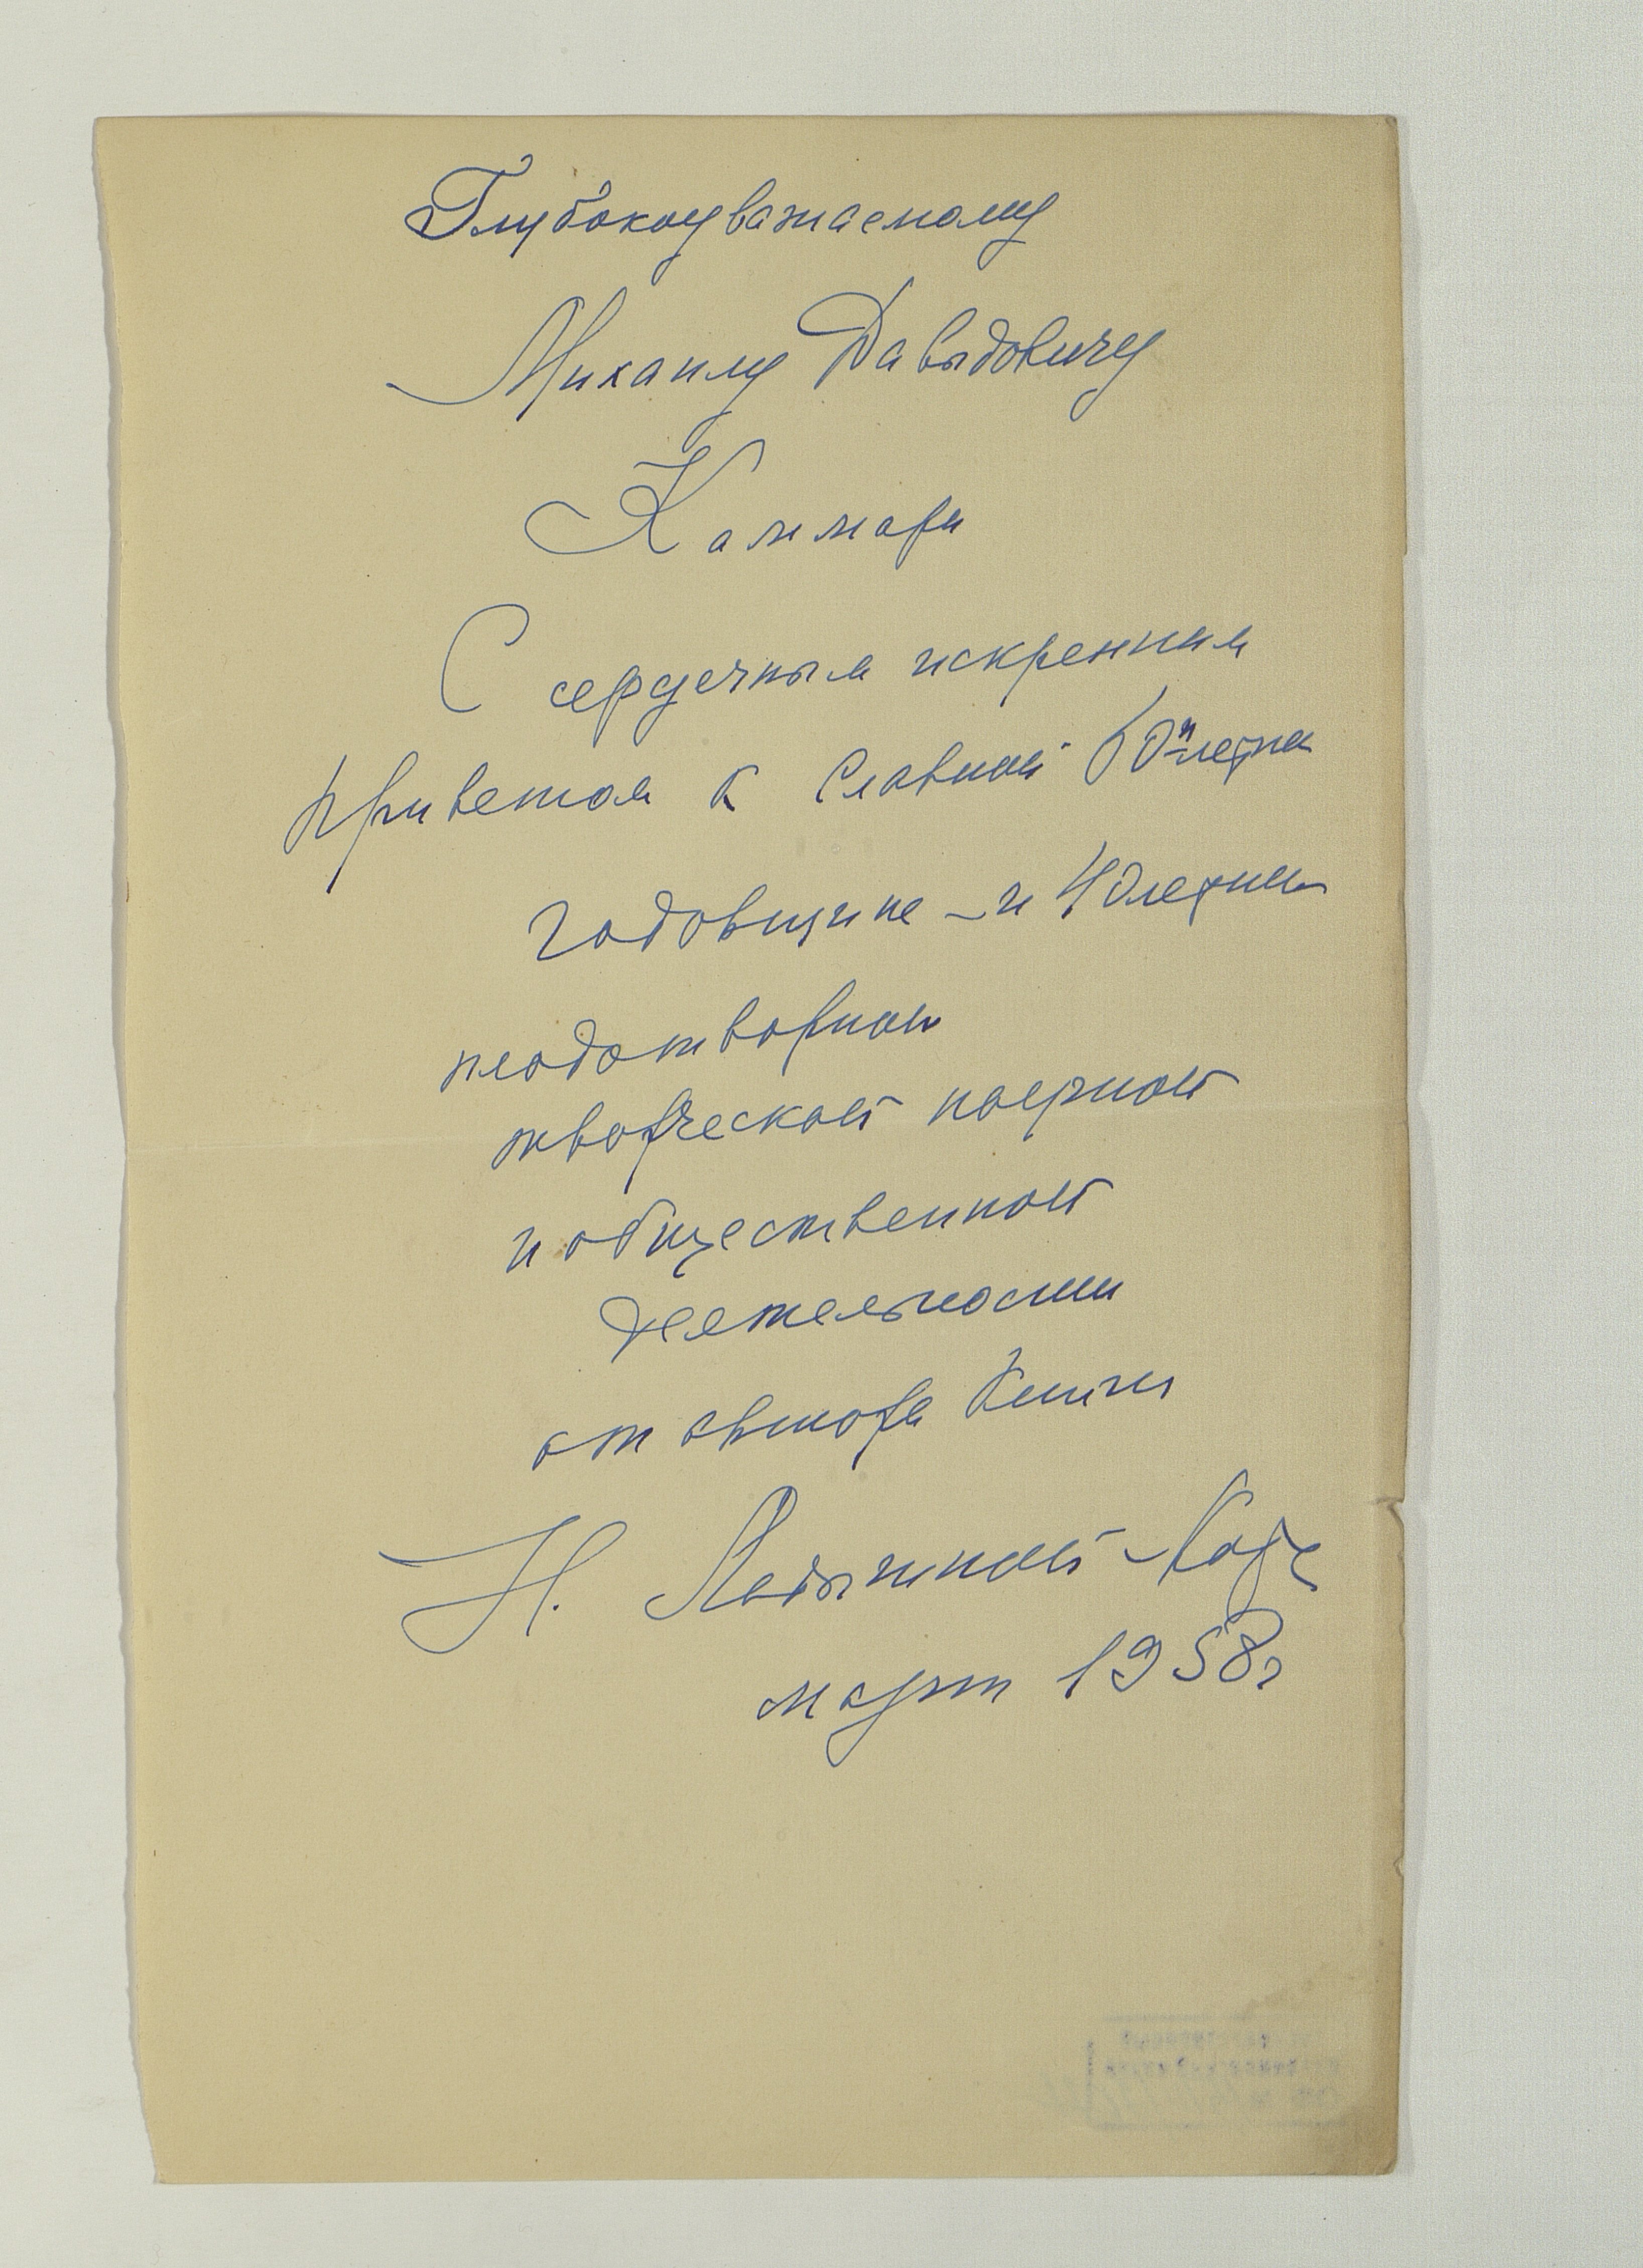 Глубокоуважаемому
Михаилу Давыдовичу
Каммари
С сердечным искренним
приветом к славной 60й-летней
годовщине – и 40летию
плодотворной
творческой научной
и общественной
деятельности
от автора книги
Н. Ладыгиной-Котс
март 1958г